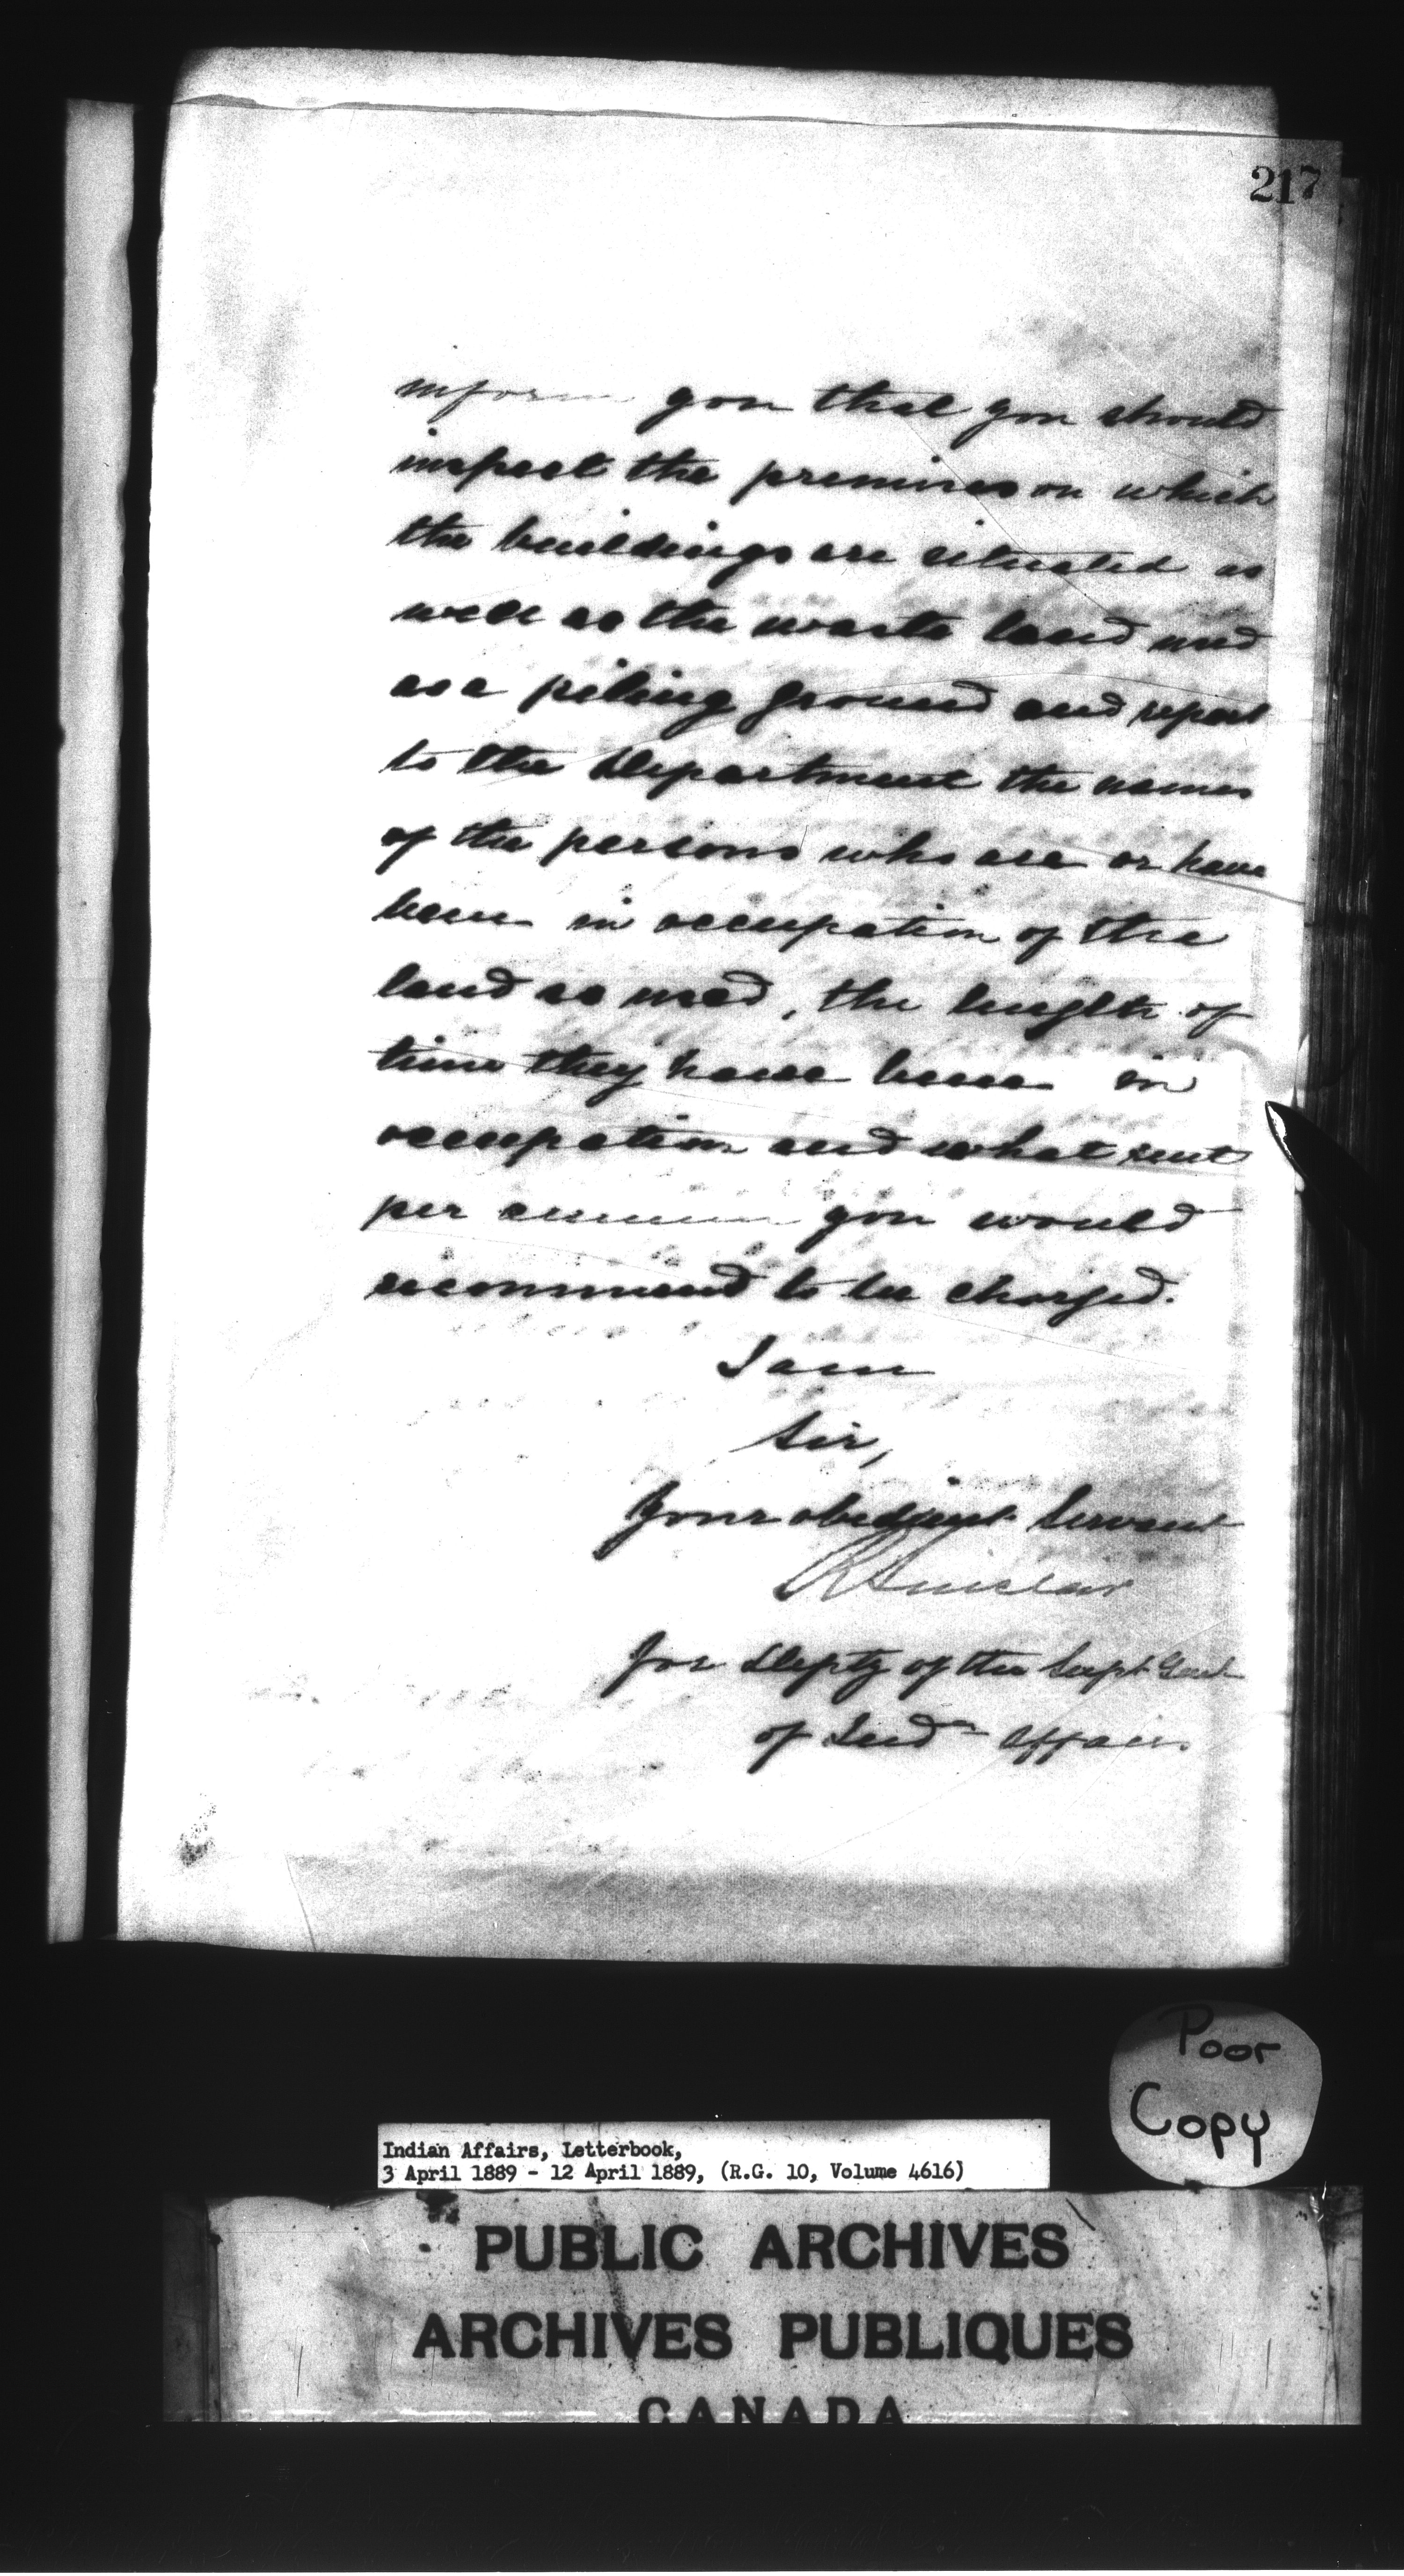 217
inform you that you should
inspect the premises on which
the buildings are situated as
well as the waste land used
as a piling ground and report
to the Department the names
of the persons who are or have
been in occupation of the
land so used, the length of
time they have been in
occupation and what rent
per annum you would
recommend to be charged.
I am
Sir,
Your obedient Servant
R Sinclair
for Depty of the Supt Genl
of Indn Affairs
Poor
Copy
Indian Affairs, Letterbook,
3 April 1889 - 12 April 1889, (R.G. 10, Volume 4616)
PUBLIC ARCHIVES
ARCHIVES PUBLIQUES
CANADA